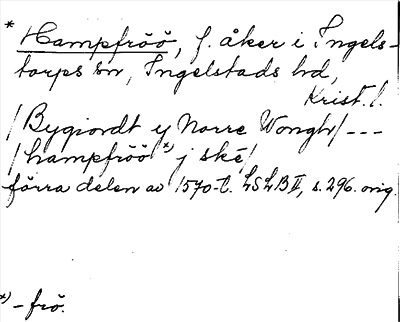 * Hampfröö, f. åker i Ingels-
torps sn, Ingelstads hd,
Krist. l.
/Bygiordt ij Norre Wongh/---
/hampfröö *) j ské/
förra delen av 1570-t. LSLB II, s. 296. orig.
*) -frö.